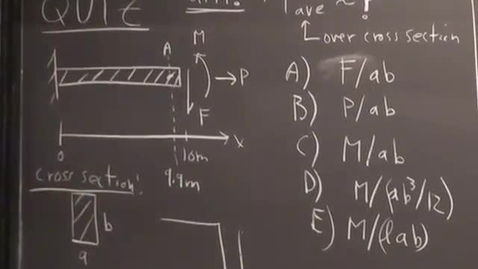 QUIZ
ave ~ ?
over cross section
A
M
P
F
x
0
10m
9.9m
cross section:
b
a
A) F/ab
B) P/ab
C) M/ab
D) M/(ab³/12)
E) M/(lab)